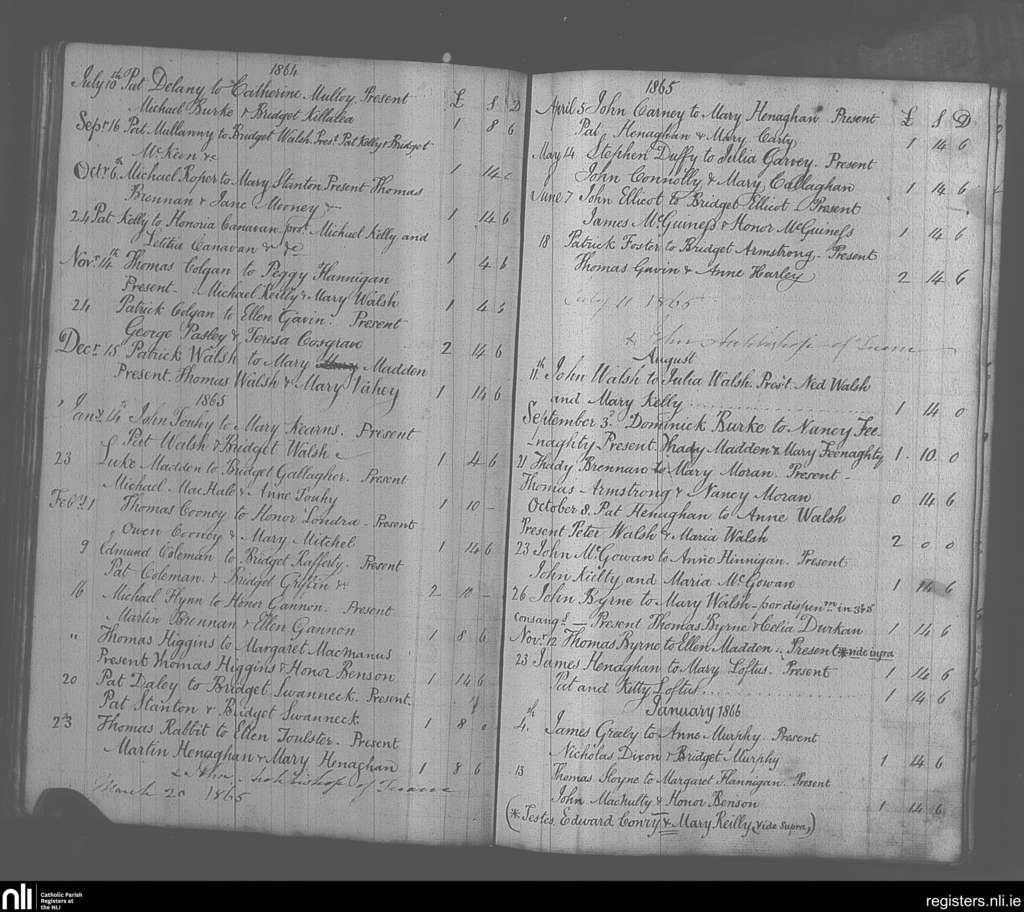 1864
£ S D
July 10th Pat Delany to Catherine Mulloy. Present
Michael Burke & Bridget Killalea 1 8 6
Sepr 16 Pat Mullanny to Bridget Walsh. Prest. Pat Kelly & Bridget
McKeon &c 1 14
Octr 6th Michael Roper to Mary Stanton Present Thomas
Brennan & Jane Mooney 1 14 6
24 Pat Kelly to Honoria Canavan. Michael Kelly and
Letitia Canavan & 1 4 6
Novr 14th Thomas Colgan to Peggy Hannigan
Present - Michael Reilly & Mary Walsh 1 4 6
24 Patrick Colgan to Ellen Gavin. Present
George Pasley & Teresa Cosgrave 2 14 6
Decr 15 Patrick Walsh to Mary Madden
Present. Thomas Walsh & Mary Vahey 1 14 6
1865
Jany 14th John Touhy to Mary Kearns. Present
Pat Walsh & Bridget Walsh 1 4 6
23 Luke Madden to Bridget Gallagher. Present
Michael MacHale & Anne Touhy 1 10 -
Feby 1 Thomas Cooney to Honor Londra - Present
Owen Cooney & Mary Mitchel 1 14 6
9 Edmund Coleman to Bridget Rafferty. Present
Pat Coleman. & Bridget Griffin & 2 10 -
16 Michael Flynn to Honor Gannon. Present
Martin Brennan & Ellen Gannon 1 8 6
" Thomas Higgins to Margaret MacManus
Present Thomas Higgins & Honor Benson 1 14 6
20 Pat Daley to Bridget Swanneck. Present.
Pat Stanton & Bridget Swanneck 1 8 0
23 Thomas Rabbit to Ellen Foulster. Present
Martin Henaghan & Mary Henaghan 1 8 6
+ John Archbishop of Tuam
March 20 1865
1865
£ S D
April 5 John Carney to Mary Henaghan Present
Pat Henaghan & Mary Carty 1 14 6
May 14 Stephen Duffy to Julia Garvey. Present
John Connolly & Mary Callaghan 1 14 6
June 7 John Ellicot to Bridget Ellicot - Present
James McGuiness & Honor McGuiness 1 14 6
18 Patrick Foster to Bridget Armstrong - Present
Thomas Gavin & Anne Harley 2 14 6
July 11 1865
+ John Archbishop of Tuam
August
11th John Walsh to Julia Walsh. Prest Ned Walsh
and Mary Kelly 1 14 0
September 3rd Dominick Burke to Nancy Fee-
naghty Present Thady Madden & Mary Feenaghty 1 10 0
21 Thady Brennan to Mary Moran. Present -
Thomas Armstrong & Nancy Moran 0 14 6
October 8. Pat Henaghan to Anne Walsh
Present Peter Walsh & Maria Walsh 2 0 0
23 John McGowan to Anne Hinnigan. Present
John Kielty and Maria McGowan 1 14 6
26 John Byrne to Mary Walsh - per dispen in 3
consang - Present Thomas Byrne & Celia Durkan 1 14 6
Novr 12 Thomas Byrne to Ellen Madden. Present *vide infra 1 14 6
23 James Henaghan to Mary Loftus. Present
Pat and Kitty Loftus 1 14 6
January 1866
4th James Greely to Anne Murphy. Present
Nicholas Dixon & Bridget Murphy 1 14 6
13 Thomas Sloyne to Margaret Hannigan. Present
John MacNulty & Honor Benson 1 14 6
(*Testes. Edward Conry & Mary Reilly (vide supra,)
nli
Catholic Parish
Registers at
the NLI
registers.nli.ie